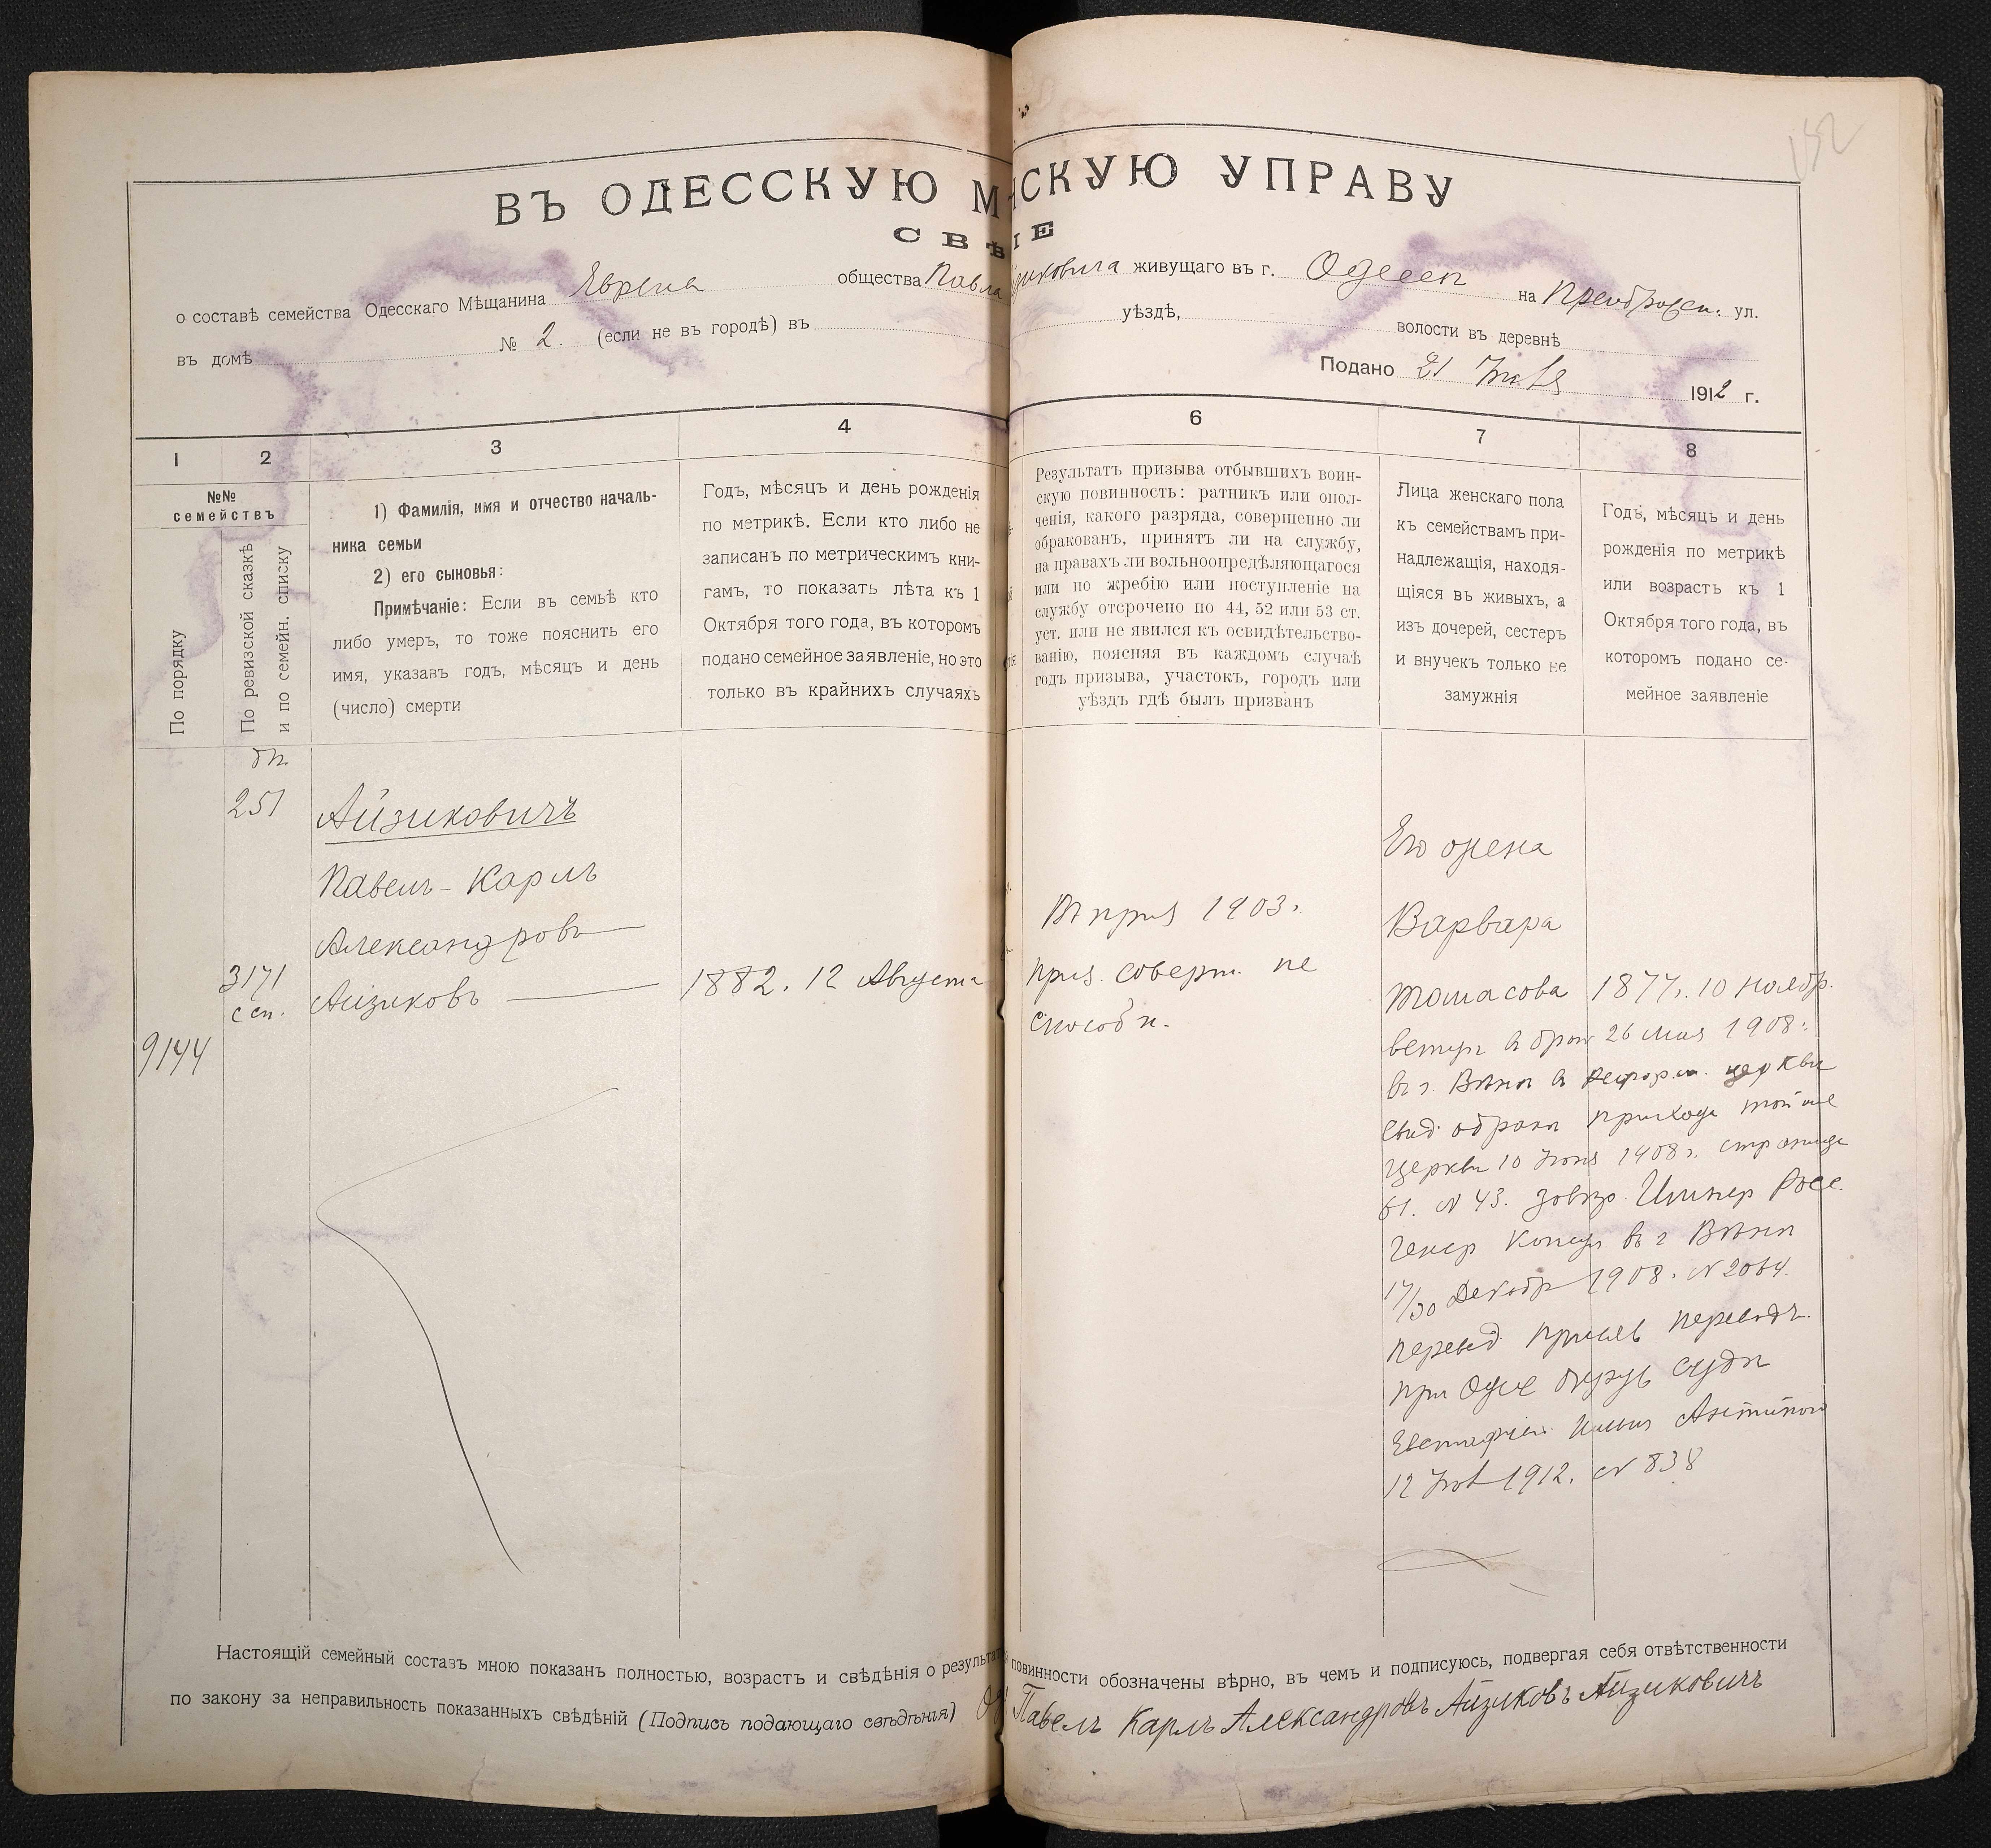 152
ВЪ ОДЕССКУЮ М СКУЮ УПРАВУ
СВѢ ІЕ
о составѣ семейства Одесскаго Мѣщанина Еврея общества Павла живущаго въ г. Одессѣ на Преображен. ул.
въ домѣ № 2. (если не въ городѣ) въ уѣздѣ, волости въ деревнѣ
Подано 21 1912 г.
1 2 3 4 6 7 8
№№
семействъ
По порядку
По ревизской сказкѣ
и по семейн. списку
1) Фамилія, имя и отчество началь-
ника семьи
2) его сыновья:
Примѣчаніе: Если въ семьѣ кто
либо умеръ, то тоже пояснить его
имя, указавъ годъ, мѣсяцъ и день
(число) смерти
Годъ, мѣсяцъ и день рожденія
по метрикѣ. Если кто либо не
записанъ по метрическимъ кни-
гамъ, то показать лѣта къ 1
Октября того года, въ которомъ
подано семейное заявленіе, но это
только въ крайнихъ случаяхъ
Результатъ призыва отбывшихъ воин-
скую повинность: ратникъ или опол-
ченія, какого разряда, совершенно ли
обракованъ, принятъ ли на службу,
на правахъ ли вольноопредѣляющагося
или по жребію или поступленіе на
службу отсрочено по 44, 52 или 53 ст.
уст. или не явился къ освидѣтельство-
ванію, поясняя въ каждомъ случаѣ
годъ призыва, участокъ, городъ или
уѣздъ гдѣ былъ призванъ
Лица женскаго пола
къ семействамъ при-
надлежащія, находя-
щіяся въ живыхъ, а
изъ дочерей, сестеръ
и внучекъ только не
замужнія
Годъ, мѣсяцъ и день
рожденія по метрикѣ
или возрастъ къ 1
Октября того года, въ
которомъ подано се-
мейное заявленіе
251
3171
с сп.
9144
Айзиковичъ
Павелъ-Карлъ
Александровъ
Айзиковъ
1882. 12 Августа
1903.
приз. соверш. не
способн.
Его жена
Варвара
Томасова 1877. 10 Ноябр.
26 Мая 1908.
въ г. Вѣнѣ в реформ. церкви
прихода той же
церкви 10 Іюня 1908 г. страница
61. N 43. Импер Росс.
Генер Консул въ г Вѣнѣ
17/30 Декабр 1908. N 2064.
перевед присяж переводч.
при Одес окруж судѣ
12 1912. N 838
Настоящій семейный составъ мною показанъ полностью, возрастъ и свѣдѣнія о результат повинности обозначены вѣрно, въ чемъ и подписуюсь, подвергая себя отвѣтственности
по закону за неправильность показанныхъ свѣдѣній (Подпись подающаго свѣдѣнія) Павелъ Карлъ Александровъ Айзиковъ Айзиковичъ